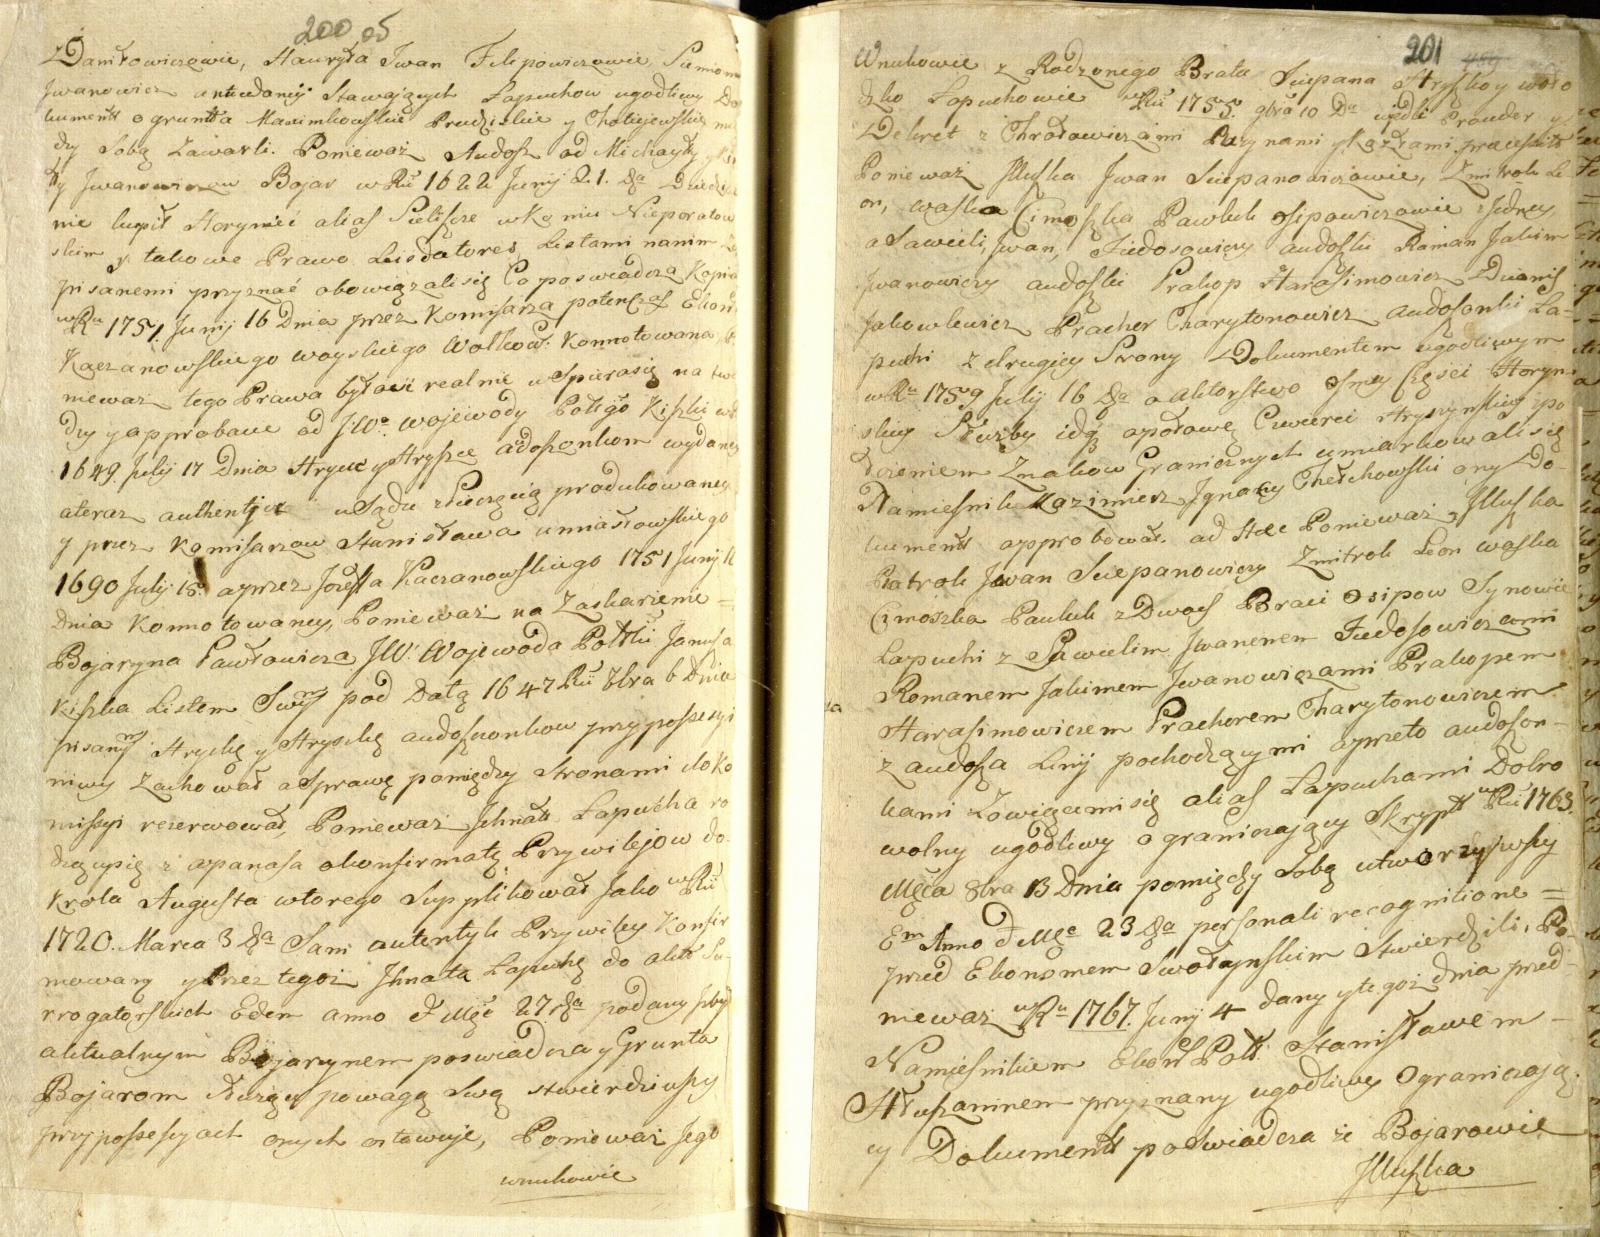 200 об
Daniłowiczowie, Hauryła Jwan Filipowiczowie Siemion
Jwanowicz antecdaniż Stawaiących Łapuchow ugodliwy Do
kument o grunta Maximkowskie Prudzickie y Chotiejewskie mię
dzy Sobą Zawarli. Ponieważ Audosz od Michayły y
ły Jwanowiczow Bojar w Rü 1622 Junij 21. Da Dziedzi
nie kupił Horynieć alias Sieliszcze w Koniu Nieporotow
skim y takowe Prawo Leisdatores Listami nanim
pisanemi przyznać obowiązalisię Co poswiadcza Kopia
w Ru 1751. Junij 16 Dnia przez Komisarza potenczas Ekon
Kaczanowskiego woyskiego Wołkow: konnotowana
nieważ tego Prawa bytość realnie wspierasię na
dzy yapprobacie od J:Wo: Wojewody Połłgo Kiszki
1649. Julij 17 Dnia Hrycce y Hryszce audoszonkom wydaney
ateraz authentyce u Sądu z Pieczęcią produkowaney
y przez Komisarzow Stanisława umiastowskiego
1690 Julij 15. aprzez Jozefa Kaczanowskiego 1751 Junij 16
Dnia konnotowaney, Ponieważ na Zaskarżenie =
Bojaryna Pawłowicza JW: Wojewoda Połłki Janusz
Kiszka Listem Swym pod Datą 1647 Rü 8bra 6 Dnia
pisanym Hryckę y Hryszkę audoszonkow przypossessyi
niwy Zachował asprawę pomiędzy Stronami do Ko
missyi rezerwował, Ponieważ Jhnatt Łapucha ro
dzącysię z apanasa okonfirmatę Przywilejow do
Krola Augusta wtorego Supplikował Jako w Rü
1720. Marca 3 Da Sam autentyk Przywiley Konfir
mowany yprzez tegoż Jhnata Łapuchę do akt Su-
rrogatorskich Eadem anno et Mce 27 Da podany byż
aktualnym Bojarynem poswiadcza y Grunta
Bojarom Służący powagą Swą stwierdziwszy
przypossessyach onych ostawuje, Ponieważ Jego
wnukowie
201
Wnukowie z Rodzonego Brata Sciepana Hryszko y woło
dzko Łapuchowie w Rü 1755. 9bra 10 Da wedle Procuder y
Dekret z Chrołowiczami Razynami y Kazłami
Ponieważ Jlluszka Jwan Sciepanowiczowie, Zmitrok Le
on, waska Cimoszka Pawluk Osipowiczowie zjedney
a Sawieli, Jwan, Fiedosowiczy audoszki Raman Jakim
Jwanowiczy audoszki Prakop Harasimowicz Dwanis
Jakowlewicz Pracher Charytonowicz audosonki Ła-
puchi z drugiey Strony Dokumentem ugodliwym
w Ru 1759 Julij 16 Da oaktorstwo osmey Części Horyn
skiey Służby idą apołowę Czwierci Hryszynskiey po
łożeniem Znakow Granicznych umiarkowalisię
Namiesnik Kazimierz Jgnacy Chełchowski ony Do-
kument approbował. ad Hæc Ponieważ, Jlluszka
Piatrok Jwan Sciepanowiczy Zmitrok Leon waska
Cimoszka Pauluk z Dwoch Braci Osipow Synowie
Łapuchi z Sawielim Jwanenem Fiedosowiczami
Romanem Jakimem Jwanowiczami Prakopem
Harasimowiczem Prachorem Charytonowiczem
z audosza Linij pochodzącymi aprzeto audoszon-
kami Zowiącemisię alias Łapuchami Dobro
wolny ugodliwy ograniczający Skrypt w Rü 1763.
Męca 8bra 13 Dnia pomiędzy Sobą utworzywszy
Em Anno et Mce 23 Da personali recognitione =
przed Ekonomem Swołyńskim Stwierdzili, Po-
nieważ w Ru 1767. Junij 4 dany ytegoż dnia przed-
Namiesnikiem Ekon Połł: Stanisławem -
Hłuszaninem przyznany ugodliwey Ograniczają-
cy Dokument poświadcza że Bojarowie
Jlluszka